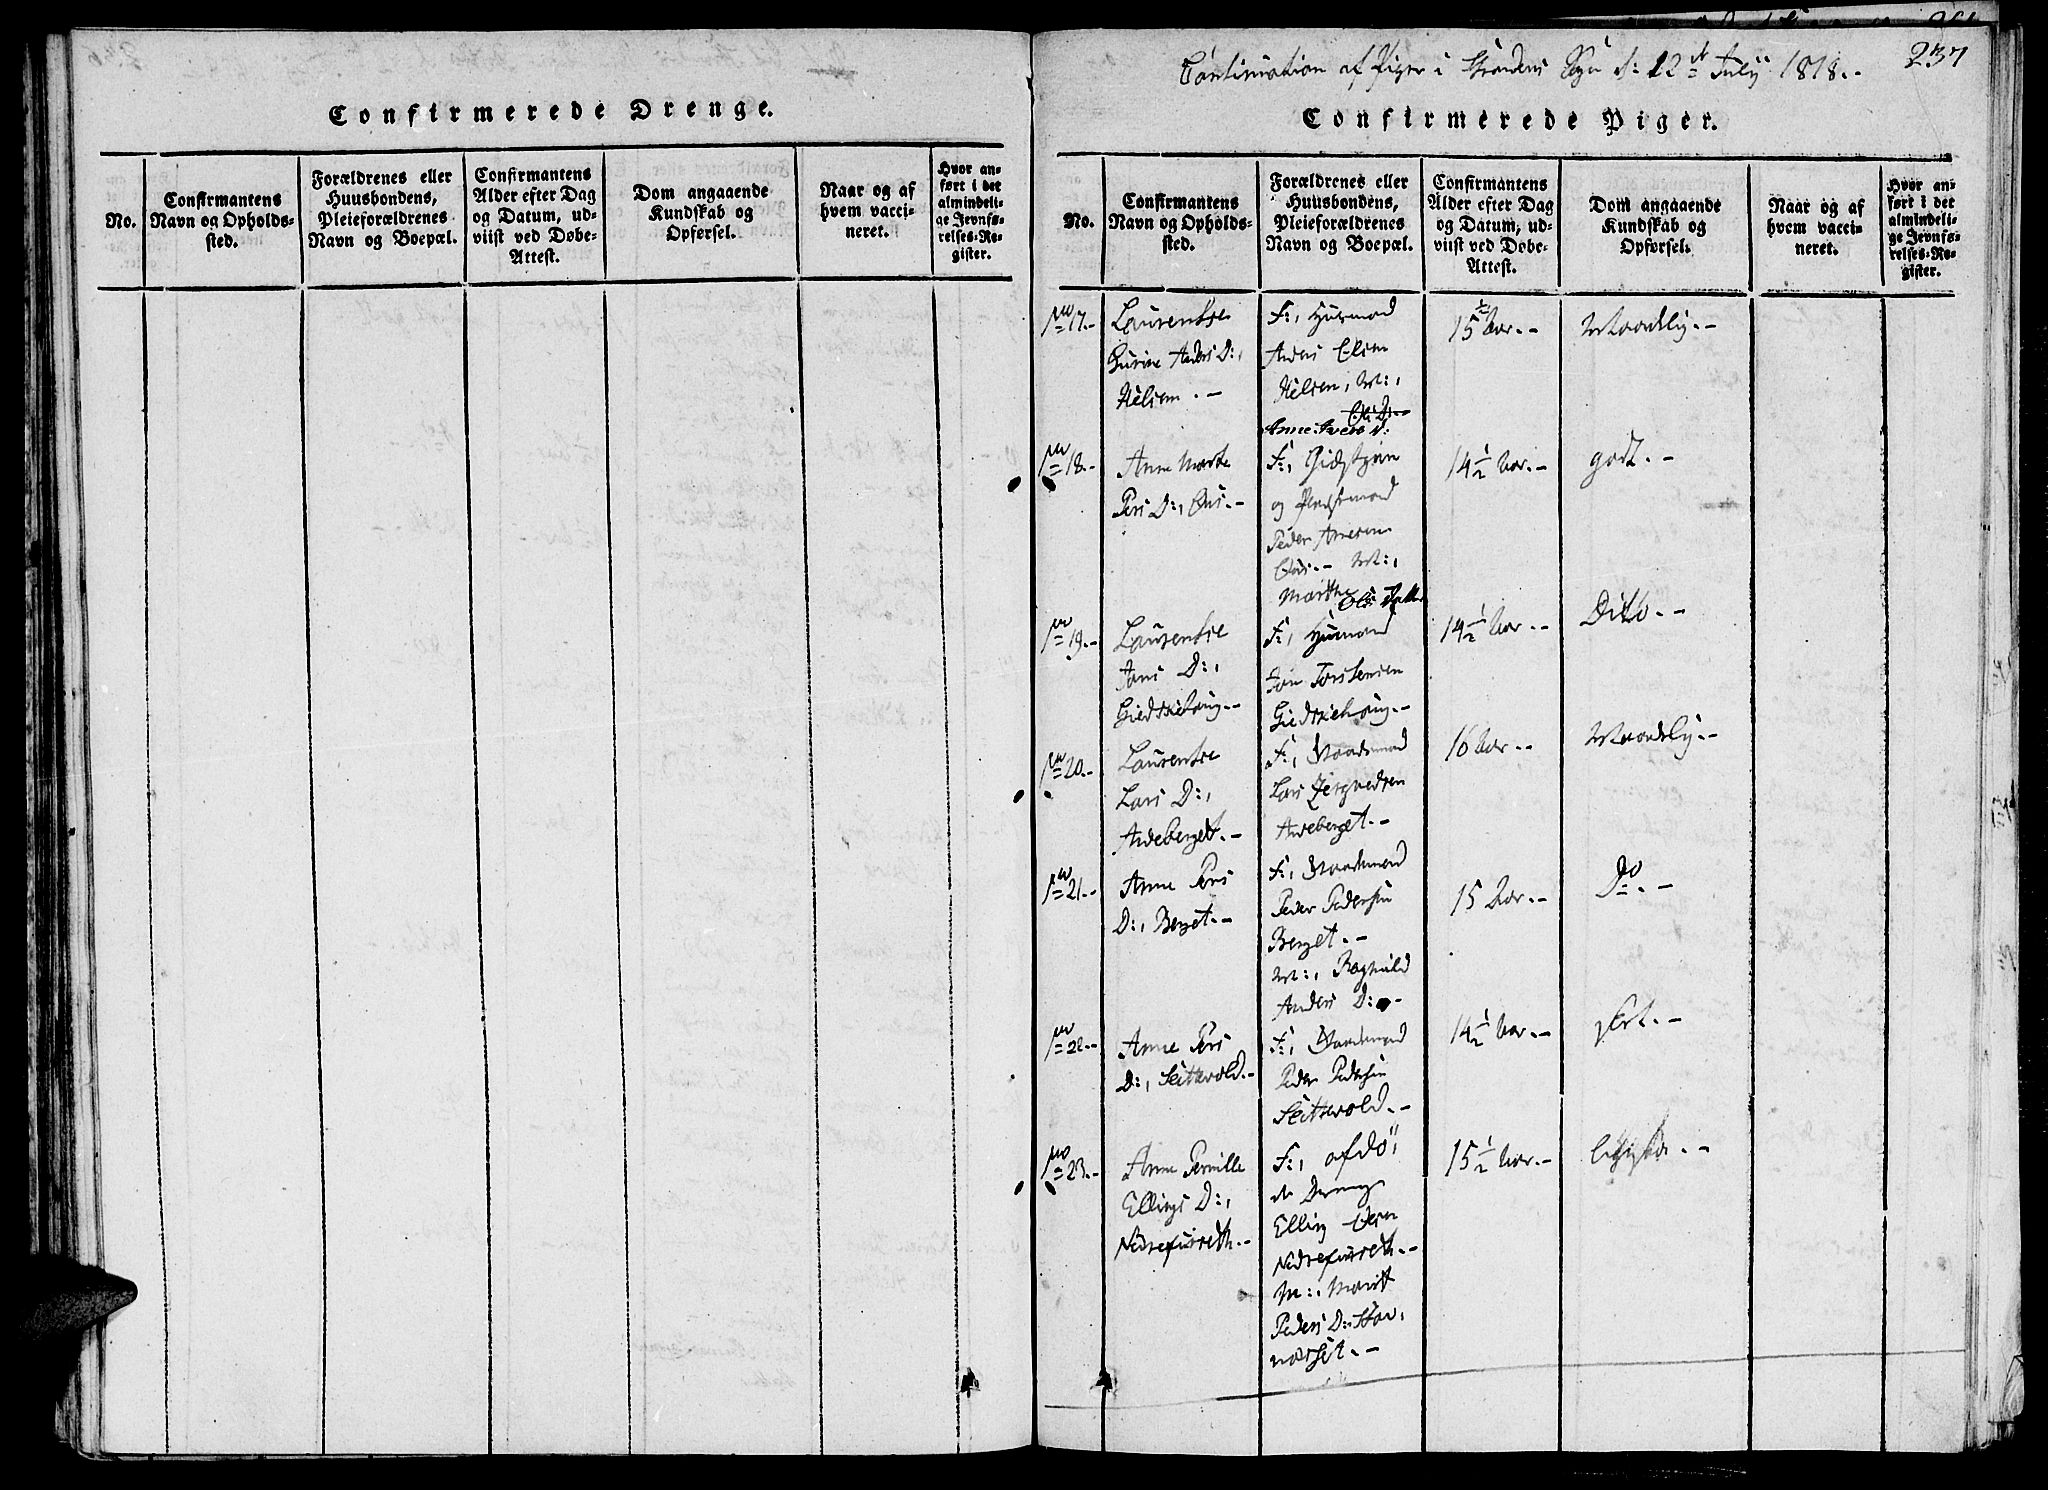 Confirmerede Drenge.
No.
Confirmantens
Navn og Opholds-
sted.
Forældrenes eller
Huusbondens,
Pleieforældrenes
Navn og Boepæl.
Confirmantens
Alder efter Dag
og Datum, ud-
viist ved Døbe-
Attest.
Dom angaaende
Kundskab og
Opførsel.
Naar og af
hvem vacci-
neret.
Hvor an-
ført i det
almindeli-
ge Jevnfø-
relses-Re-
gister.
af Piger i d: 12te Julij 1818.-
237
Confirmerede Piger.
No.
Confirmantens
Navn og Opholds-
sted.
Forældrenes eller
Huusbondens,
Pleieforældrenes
Navn og Boepæl.
Confirmantens
Alder efter Dag
og Datum, ud-
viist ved Døbe-
Attest.
Dom angaaende
Kundskab og
Opførsel.
Naar og af
hvem vacci-
neret.
Hvor an-
ført i det
almindeli-
ge Jevnfø-
relses-Re-
gister.
17.-
Laurentse
Gurine Anders D:,
Helsem.-
F:, Husmand
Anders Elsen
Helsem, M:,
Ols D:-
Anne
15 1/2 Aar.-
Maadelig.-
18.-
Anne Marte
Pers D:, Øus.-
F:,
og
Peder Arnesen
Øus.- M:,
Marthe Ols
14 1/2 Aar.-
godt.-
19.-
Laurentse
Jons D:,
Giedskehoug.-
F:, Husmand
Jon Torstensen
Giedskehoug.-
14 1/2 Aar.-
Dito.-
20.-
Laurentse
Lars D:,
Aaseberget.-
F:, Gaardmand
Lars
Aaseberget.-
16 Aar.-
Maadelig.-
21.-
Anne Pers
D:, Berget.-
F:, Gaardmand
Peder Pedersen
Berget.-
M:, Ragnhild
Anders D:-
15 Aar.-
Do.-
22.-
Anne Pers
D:, Settevold.-
F:, Gaardmand
Peder Pedersen
Settevold.-
14 1/2 Aar.-
23.-
Anne Pernille
Ellings D:,
Nedrefurseth.-
F:, afdø"
de
Elling Olsen
Nedrefurseth.-
M:, Marit
Peders D: Stor,
næsset.-
15 1/2 Aar.-